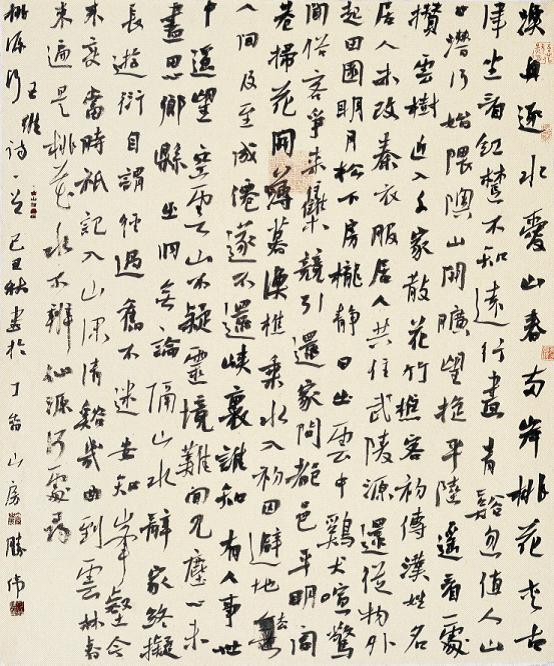 漁舟逐水愛山春兩岸桃花夾古
津坐看紅樹不知遠行盡青谿忽值人山
口潛行始隈隩山開曠望旋平陸遙看一處
攢雲樹近入千家散花竹樵客初傳漢姓名
居人未改秦衣服居人共住武陵源還從物外
起田園明月松下房櫳靜日出雲中鷄犬喧驚
聞俗客爭來集競引還家問都邑平明閭
巷掃花開薄暮漁樵乘水入初因避地去
人間及至成僊遂不還峽裏誰知有人事世
中遙望空雲山不疑靈境難聞見塵心未
盡思鄉縣出洞無論隔山水辭家終擬
長遊衍自謂經過舊不迷安知峯壑今
來變當時秖記入山深清谿幾曲到雲林春
來遍是桃花水不辨仙源何處尋
桃源行 王維詩一首 己丑秋書於丁翁山房 勝偉